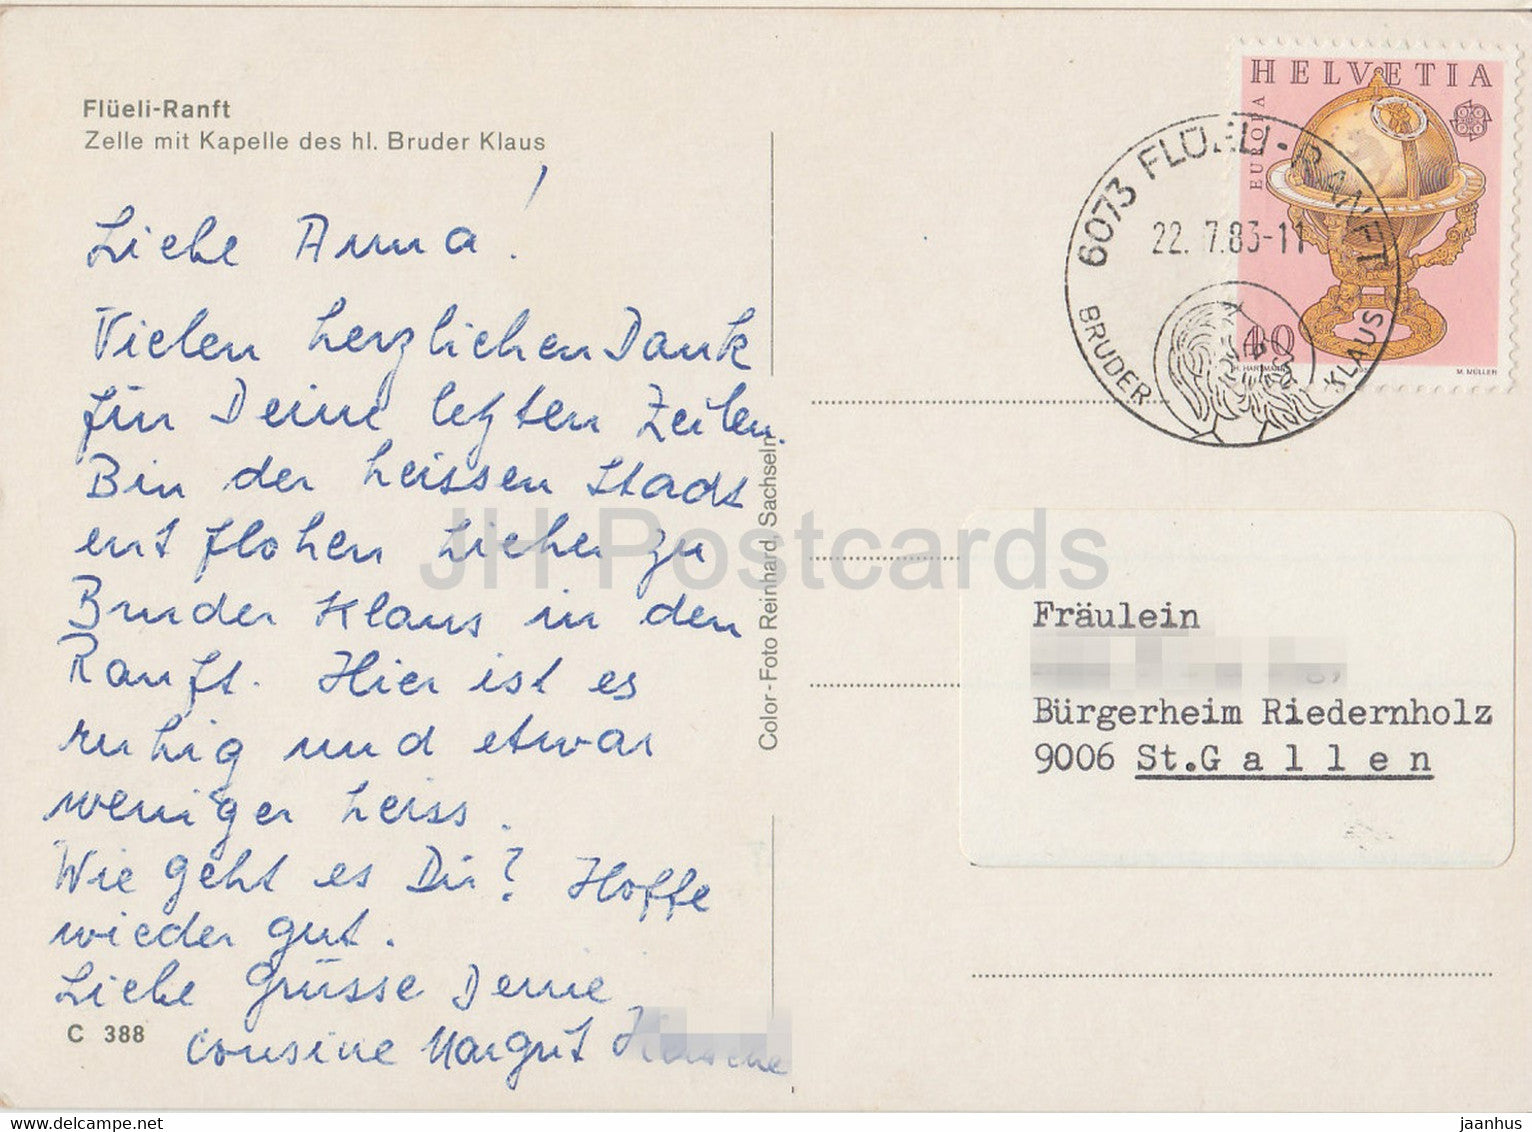 Flüeli-Ranft
Zelle mit Kapelle des hl. Bruder Klaus
Liebe Anna!
Vielen herzlichen Dank
für Deine letzten Zeilen.
Bin der heissen Stadt
entflohen hieher zu
Bruder Klaus in den
Ranft. Hier ist es
ruhig und etwas
weniger heiss.
Wie geht es Dir? Hoffe
wieder gut.
Liebe Grüsse Deine
Cousine Margrit
C 388
Color-Foto Reinhard, Sachseln
HELVETIA
EUROPA
40
M. MÜLLER
6073 FLÜELI-RANFT
22. 7.83-11
BRUDER KLAUS
Fräulein
Bürgerheim Riedernholz
9006 St.Gallen
JH Postcards
jaanhus
delcampe.net